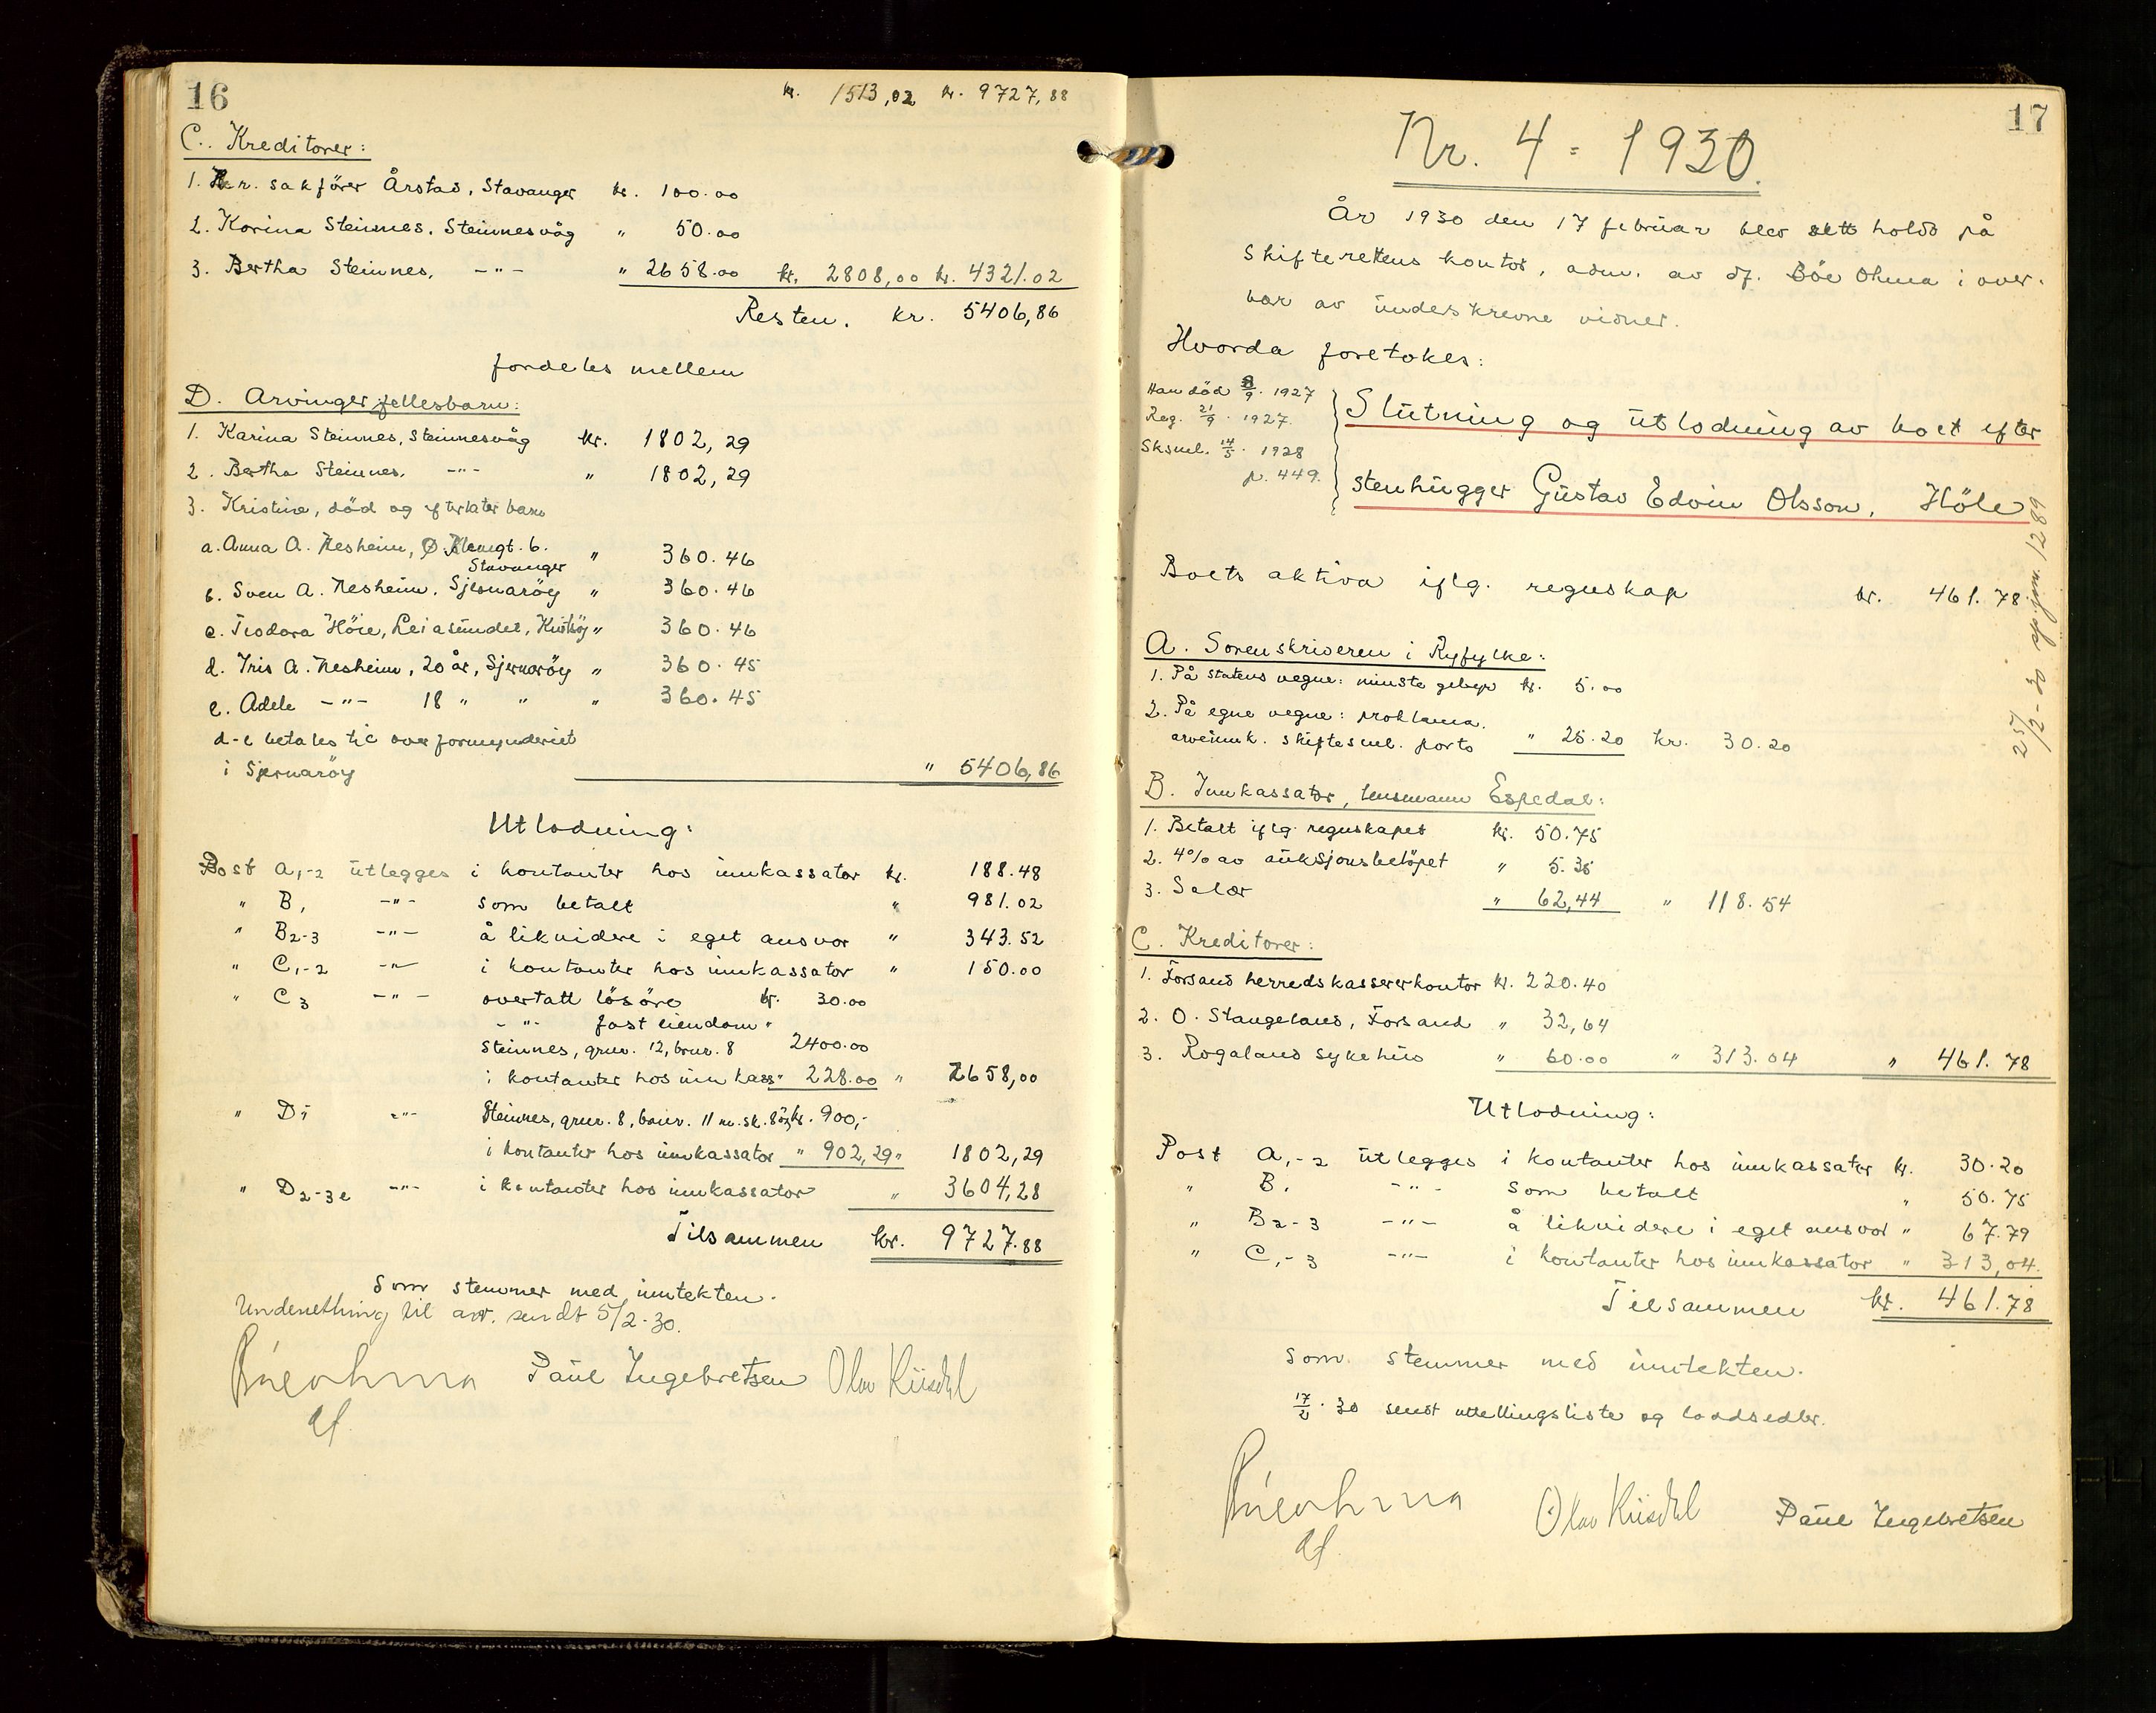 16
kr. 1513,02 kr. 9727,88
C. Kreditorer:
1. H.r. sakförer Årstad, Stavanger kr. 100.00
2. Karina Steinnes, Steinnesvåg " 50.00
3. Bertha Steinnes, -"- " 2658.00 kr. 2808,00 kr. 4321.02
Resten. kr. 5406,86
fordeles mellem
D. Arvinger fellesbarn:
1. Karina Steinnes, Steinnesvåg kr. 1802,29
2. Bertha Steinnes, -"- " 1802,29
3. Kristine, död og efterlater barn
a. Anna A. Nesheim, Ø. 6.
Stavanger " 360.46
b. Sven A. Nesheim, Sjernaröy " 360.46
c. Teodora Höie, Leiasundet, " 360.46
d. Iris A. Nesheim, 20 år, Sjernaröy " 360.45
e. Adele -"- 18 " " " 360.45
d-e betales til overformynderiet
i Sjernaröy " 5406,86
Utlodning:
Post A1-2 utlegges i kontanter hos innkassator kr. 188.48
" B1 -"- som betalt " 981.02
" B2-3 -"- å likvidere i eget ansvar " 343.52
" C1-2 -"- i kontanter hos innkassator " 150.00
" C3 -"- overtatt lösöre kr. 30.00
-"- fast eiendom "
Steinnes, grnr. 12, brnr. 8 2400.00
i kontanter hos innkass " 228.00 " 2658,00
" D1 -"- Steinnes, grnr. 8, brnr. 11 m. sk. 8 öre, kr. 900,-
i kontanter hos innkassator " 902,29 " 1802,29
" D2-3e -"- i kontanter hos innkassator " 3604,28
Tilsammen kr. 9727.88
som stemmer med inntekten.
Underretning til arv. sendt 5/2-30.
Böe Ohma Paul Ingebretsen Olav
cf.
17
Nr. 4 - 1930.
År 1930 den 17 februar blev rett holdt på
Skifterettens kontor, adm. av df. Böe Ohma i over-
vær av underskrevne vidner.
Hvorda foretokes:
Han död 8/9. 1927
Reg. 21/9. 1927.
Sksml. 14/5. 1928
p. 449.
Slutning og utlodning av boet efter
stenhugger Gustav Edvin Olsson, Höle
25/2-30 1289
Boets aktiva iflg. regnskap kr. 461.78
A. Sorenskriveren i Ryfylke:
1. På statens vegne: minste gebyr kr. 5.00
2. På egne vegne: proklama.
arveinnk. skiftesml. porto " 25.20 kr. 30.20
B. Innkassator, lensmann Espedal:
1. Betalt iflg. regnskapet kr. 50.75
2. 4% av auksjonsbelöpet " 5.35
3. Salær " 62,44 " 118.54
C. Kreditorer:
1. Forsand herredskassererkontor kr. 220.40
2. O. Stangeland, Forsand " 32,64
3. Rogaland sykehus " 60.00 " 313.04 " 461.78
Utlodning:
Post A1-2 utlegges i kontanter hos innkassator kr. 30.20
" B1 -"- som betalt " 50.75
" B2-3 -"- å likvidere i eget ansvar " 67.79
" C1-3 -"- i kontanter hos innkassator " 313,04.
Tilsammen kr. 461.78
som stemmer med inntekten.
17/2.30 sendt utlegningsliste og loddsedler.
Böe Ohma Olav Paul Ingebretsen
cf.